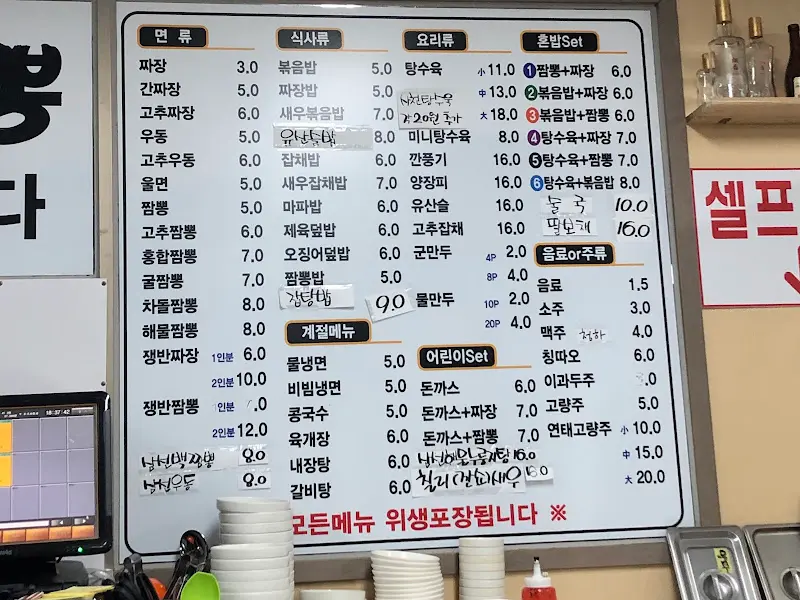 뽕
다
면 류
짜장 3.0
간짜장 5.0
고추짜장 6.0
우동 5.0
고추우동 6.0
울면 5.0
짬뽕 5.0
고추짬뽕 6.0
홍합짬뽕 7.0
굴짬뽕 7.0
차돌짬뽕 8.0
해물짬뽕 8.0
쟁반짜장 1인분 6.0
2인분 10.0
쟁반짬뽕 1인분
2인분 12.0
삼선백짬뽕 8.0
삼선우동 8.0
식사류
볶음밥 5.0
짜장밥 5.0
새우볶음밥 7.0
유산슬밥 8.0
잡채밥 6.0
새우잡채밥 7.0
마파밥 6.0
제육덮밥 6.0
오징어덮밥 6.0
짬뽕밥 5.0
잡탕밥 9.0
계절메뉴
물냉면 5.0
비빔냉면 5.0
콩국수 5.0
육개장 6.0
내장탕 6.0
갈비탕 6.0
요리류
탕수육 小 11.0
中 13.0
사천탕수육
大 18.0
미니탕수육 8.0
깐풍기 16.0
양장피 16.0
유산슬 16.0
고추잡채 16.0
군만두 4P 2.0
8P 4.0
물만두 10P 2.0
20P 4.0
어린이Set
돈까스 6.0
돈까스+짜장 7.0
돈까스+짬뽕 7.0
삼선해물누룽지탕 16.0
칠리(깐쇼)새우
혼밥Set
1 짬뽕+짜장 6.0
2 볶음밥+짜장 6.0
3 볶음밥+짬뽕 6.0
4 탕수육+짜장 7.0
5 탕수육+짬뽕 7.0
6 탕수육+볶음밥 8.0
술 국 10.0
팔보채 16.0
음료or주류
음료 1.5
소주 3.0
맥주 청하 4.0
칭따오 6.0
이과두주
고량주 5.0
연태고량주 小 10.0
中 15.0
大 20.0
모든메뉴 위생포장됩니다 ※
셀프
18:37:42